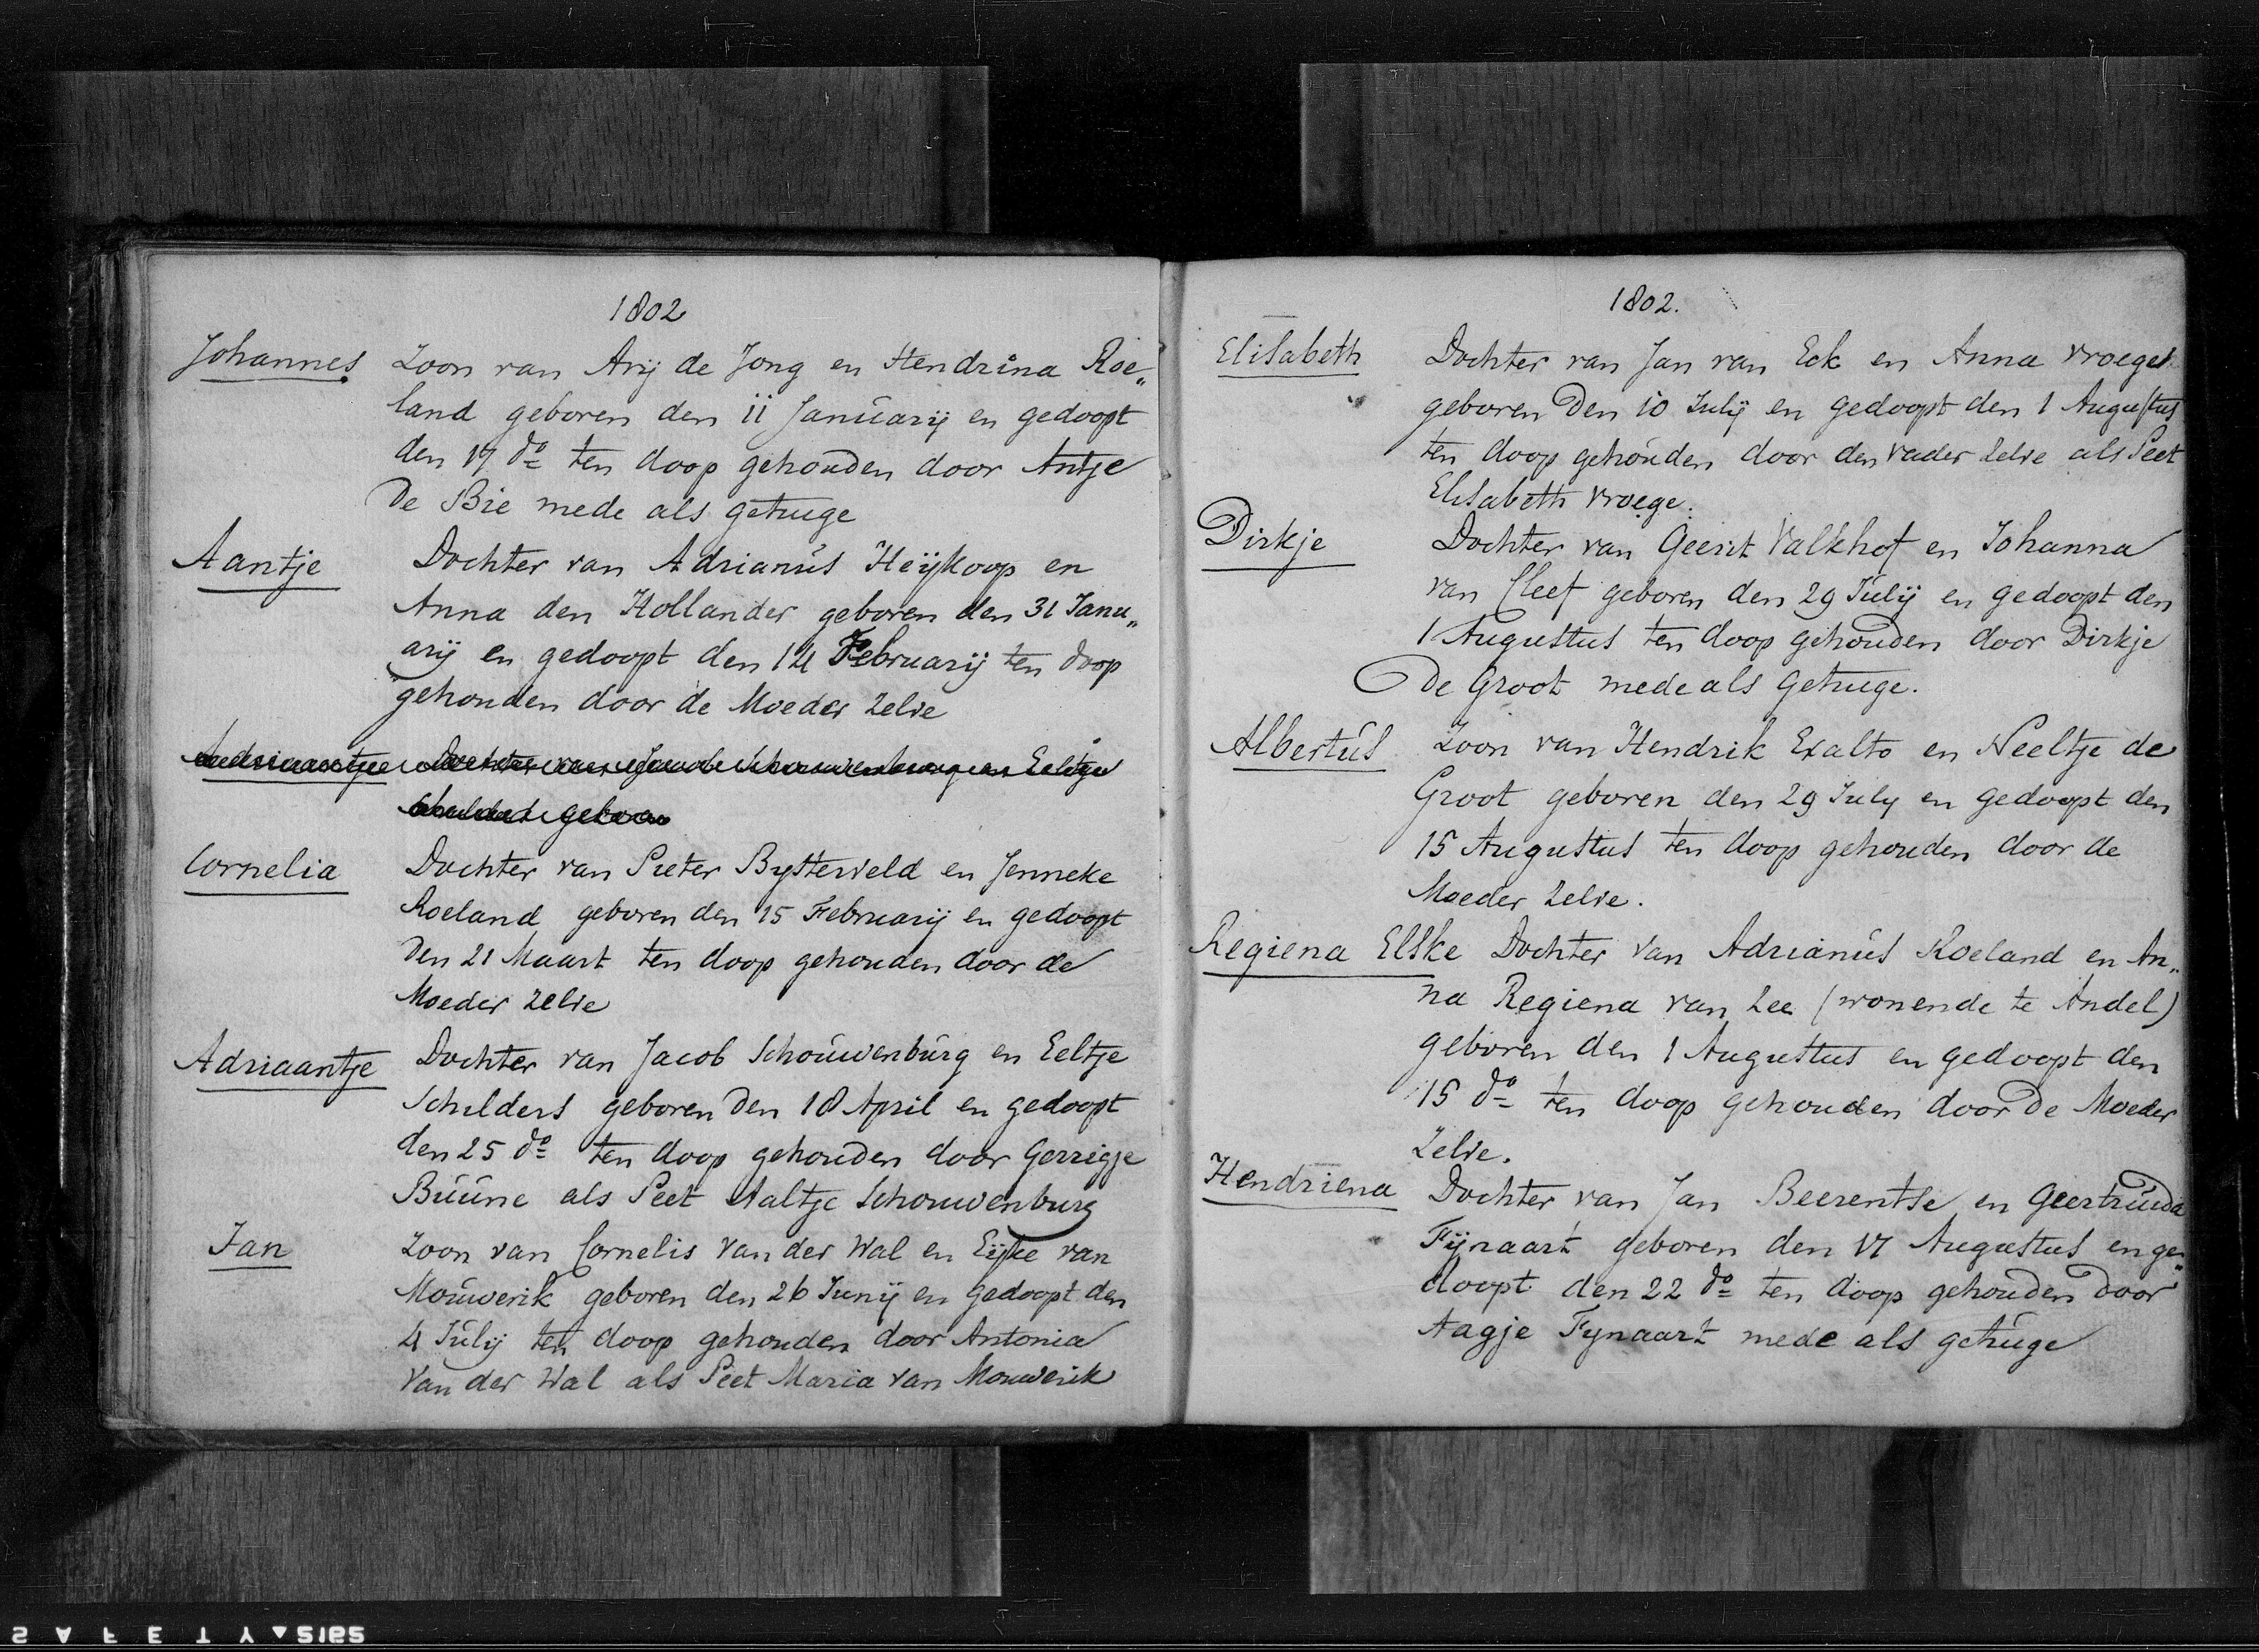 1802
Johannes Zoon van Arij de Jong en Hendrina Roe„
land geboren den 11 Januarij en gedoopt
den 17 do ten doop gehouden door Antje
de Bie mede als getuige
Aantje Dochter van Adrianus Heijkoop en
Anna den Hollander geboren den 31 Janu„
arij en gedoopt den 14 Februarij ten doop
gehouden door de Moeder Zelve
Adriaantje Dochter van Jacob Schouwenburg en Eeltje
Schilders geboren
Cornelia Dochter van Pieter Bysterveld en Jenneke
Roeland geboren den 15 Februarij en gedoopt
den 21 Maart ten doop gehouden door de
Moeder Zelve
Adriaantje Dochter van Jacob Schouwenburg en Eeltje
Schilders geboren den 18 April en gedoopt
den 25 do ten doop gehouden door Gerrigje
Buune als Peet Aaltje Schouwenburg
Jan Zoon van Cornelis van der Wal en Eijke van
Mouwerik geboren den 26 Junij en gedoopt den
4 Julij ten doop gehouden door Antonia
van der Wal als Peet Maria van Mouwerik
1802.
Elisabeth Dochter van Jan van Eck en Anna Vroege
geboren den 10 Julij en gedoopt den 1 Augustus
ten doop gehouden door den vader Zelve als Peet
Elisabeth Vroege.
Dirkje Dochter van Geerit Valkhof en Johanna
van Cleef geboren den 29 Julij en gedoopt den
1 Augustus ten doop gehouden door Dirkje
De Groot mede als Getuige.
Albertus Zoon van Hendrik Exalto en Neeltje de
Groot geboren den 29 July en gedoopt den
15 Augustus ten doop gehouden door de
Moeder Zelve.
Regiena Elske Dochter van Adrianus Roeland en An„
na Regiena van Zee (wonende te Andel)
geboren den 1 Augustus en gedoopt den
15 do ten doop gehouden door de Moeder
Zelve.
Hendriena Dochter van Jan Beerentse en Geertruida
Fijnaart geboren den 17 Augustus en ge„
doopt den 22 do ten doop gehouden door
Aagje Fynaart mede als getuige
SAFETY 5185